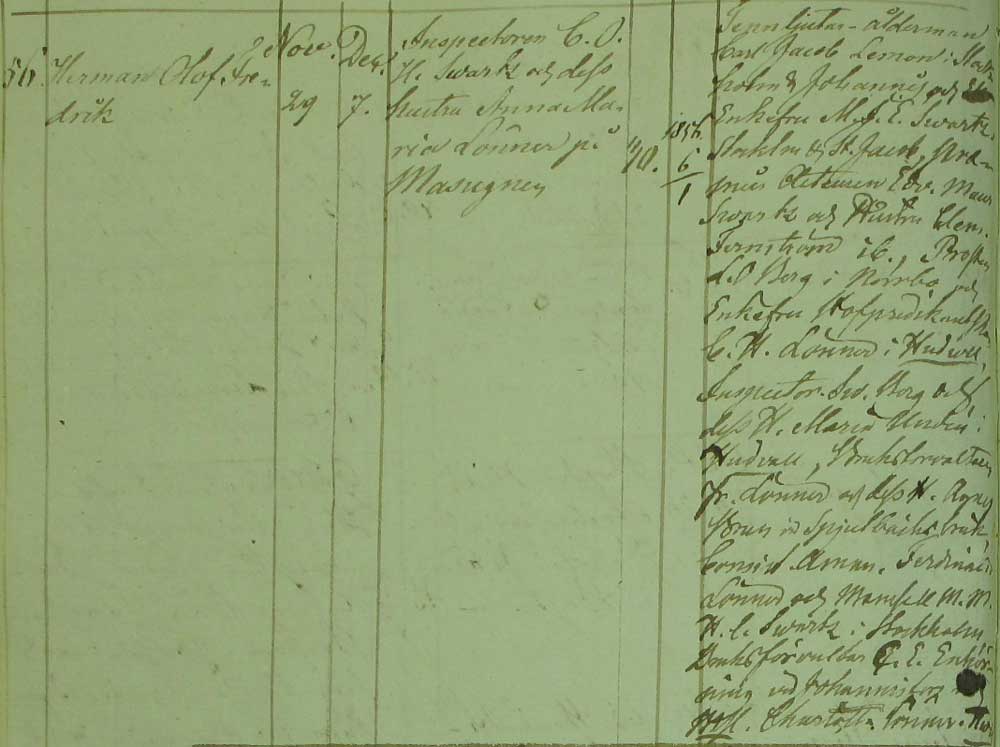 56. Herman Olof Fre-
drik
Nov. Dec.
29 7.
Inspectoren C. O.
H. Swartz och dess
hustru Anna Ma-
ria Lönner på
Masugnen
40.
1856.
6
1
Tenngjutar-ålderman
Carl Jacob Lemon i Stock-
holm & Johannis och
Enkefru M. J. E. Swartz
Stockholm & St. Jacob,
Edv.
Swartz och Hustru Clem.
Fernström ib., Prosten
L. O Borg i Norrbo och
Enkefru Hofpredikantskan
C. H. Lönner i Hudvall,
Inspector Borg och
dess H. Maria i
Hudvall, Bruksförvaltaren
Fr. Lönner och dess H. Agnes
Bruun vid bruk,
Ferdinand
Lönner och Mamsell M. M.
H. C. Swartz i Stockholm
Bruksförvaltar C. E. Enhör-
ning vid Johannisfors och
Charlott. Lönner.